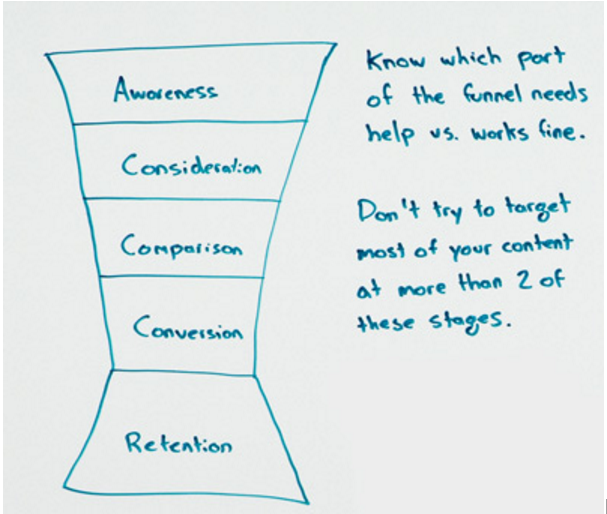 Awareness
Consideration
Comparison
Conversion
Retention
Know which part
of the funnel needs
help vs. works fine.
Don't try to target
most of your content
at more than 2 of
these stages.